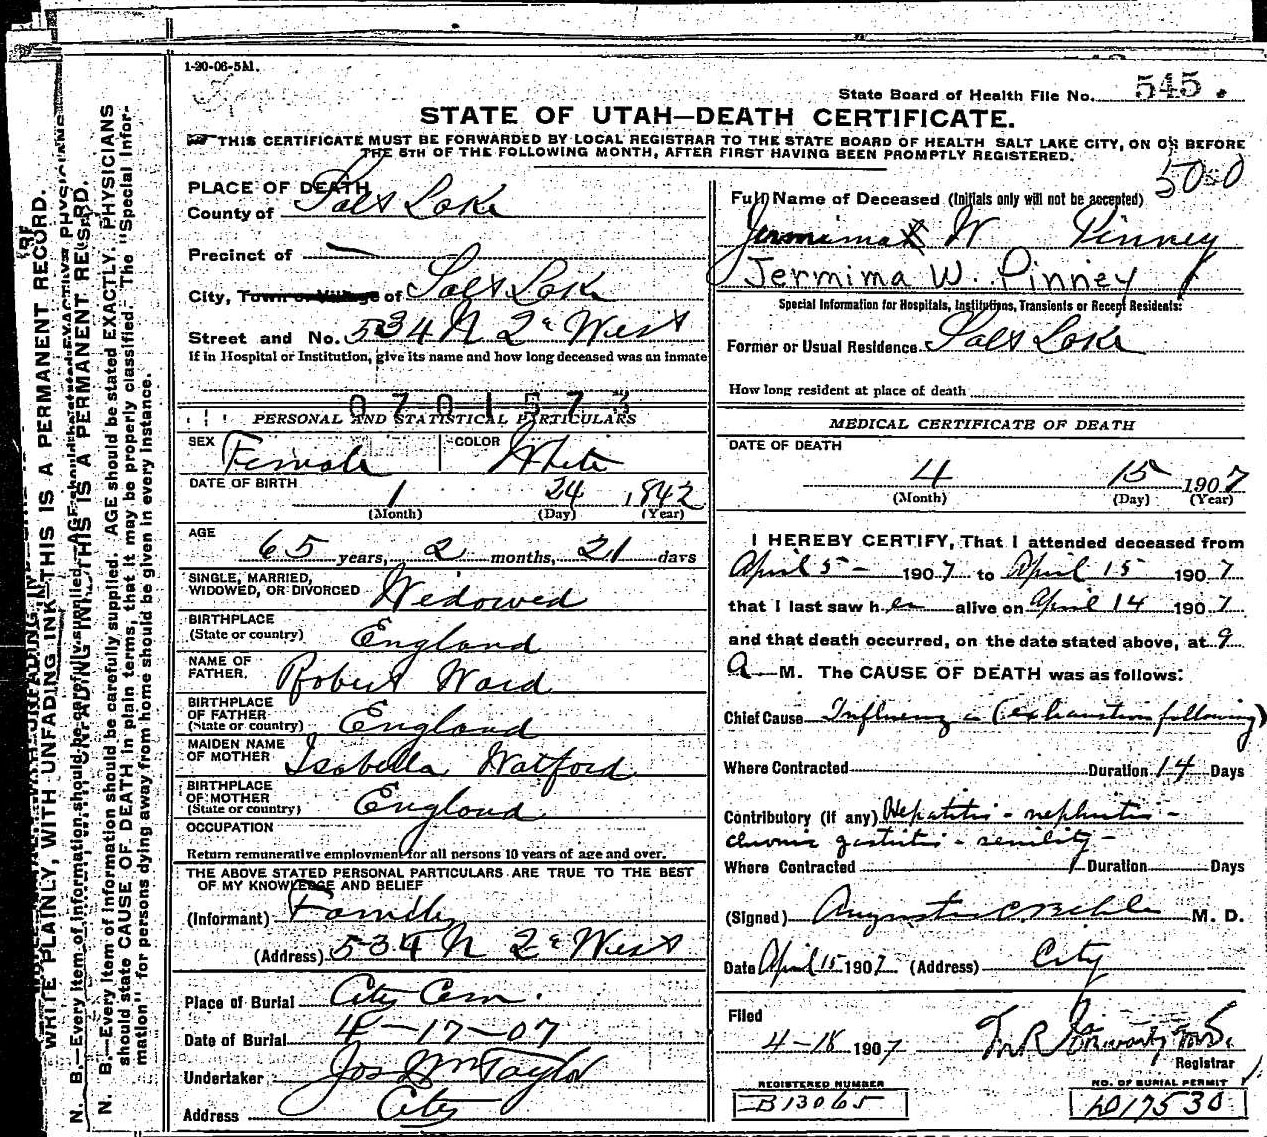 1-20-06-5M.
State Board of Health File No. 545.
STATE OF UTAH—DEATH CERTIFICATE.
THIS CERTIFICATE MUST BE FORWARDED BY LOCAL REGISTRAR TO THE STATE BOARD OF HEALTH SALT LAKE CITY, ON OR BEFORE
THE 5TH OF THE FOLLOWING MONTH, AFTER FIRST HAVING BEEN PROMPTLY REGISTERED.
PLACE OF DEATH
County of Salt Lake
Precinct of —
City, Town or Village of Salt Lake
Street and No. 534 N 2d West
If in Hospital or Institution, give its name and how long deceased was an inmate
0701573
PERSONAL AND STATISTICAL PARTICULARS
SEX Female COLOR White
DATE OF BIRTH 1 24 1842
(Month) (Day) (Year)
AGE
65 years, 2 months, 21 days
SINGLE, MARRIED,
WIDOWED, OR DIVORCED Widowed
BIRTHPLACE
(State or country) England
NAME OF
FATHER. Robert Ward
BIRTHPLACE
OF FATHER
(State or country) England
MAIDEN NAME
OF MOTHER Isabella Watford
BIRTHPLACE
OF MOTHER
(State or country) England
OCCUPATION
Return remunerative employment for all persons 10 years of age and over.
THE ABOVE STATED PERSONAL PARTICULARS ARE TRUE TO THE BEST
OF MY KNOWLEDGE AND BELIEF
(Informant) Family
(Address) 534 N 2d West
Place of Burial City Cem.
Date of Burial 4-17-07
Undertaker Jos Wm Taylor
Address City
5000
Full Name of Deceased (Initials only will not be accepted)
Jermima W Pinney
Jermima W. Pinney
Special Information for Hospitals, Institutions, Transients or Recent Residents:
Former or Usual Residence Salt Lake
How long resident at place of death
MEDICAL CERTIFICATE OF DEATH
DATE OF DEATH
4 15 1907
(Month) (Day) (Year)
I HEREBY CERTIFY, That I attended deceased from
April 5 - 1907 to April 15 1907
that I last saw her alive on April 14 1907
and that death occurred, on the date stated above, at 9
A M. The CAUSE OF DEATH was as follows:
Chief Cause Influenza (exhaustion following)
Where Contracted Duration 14 Days
Contributory (if any) Hepatitis - nephritis -
chronic gastritis - senility -
Where Contracted Duration Days
(Signed) Augustus C Behle M. D.
Date April 15 1907 (Address) City
Filed
4-18 1907
Registrar
REGISTERED NUMBER
B13065
NO. OF BURIAL PERMIT
D17530
WRITE PLAINLY, WITH UNFADING INK—THIS IS A PERMANENT RECORD.
N. B.—Every item of information should be carefully supplied. AGE should be stated EXACTLY. PHYSICIANS
should state CAUSE OF DEATH in plain terms, that it may be properly classified. The "Special Infor-
mation" for persons dying away from home should be given in every instance.